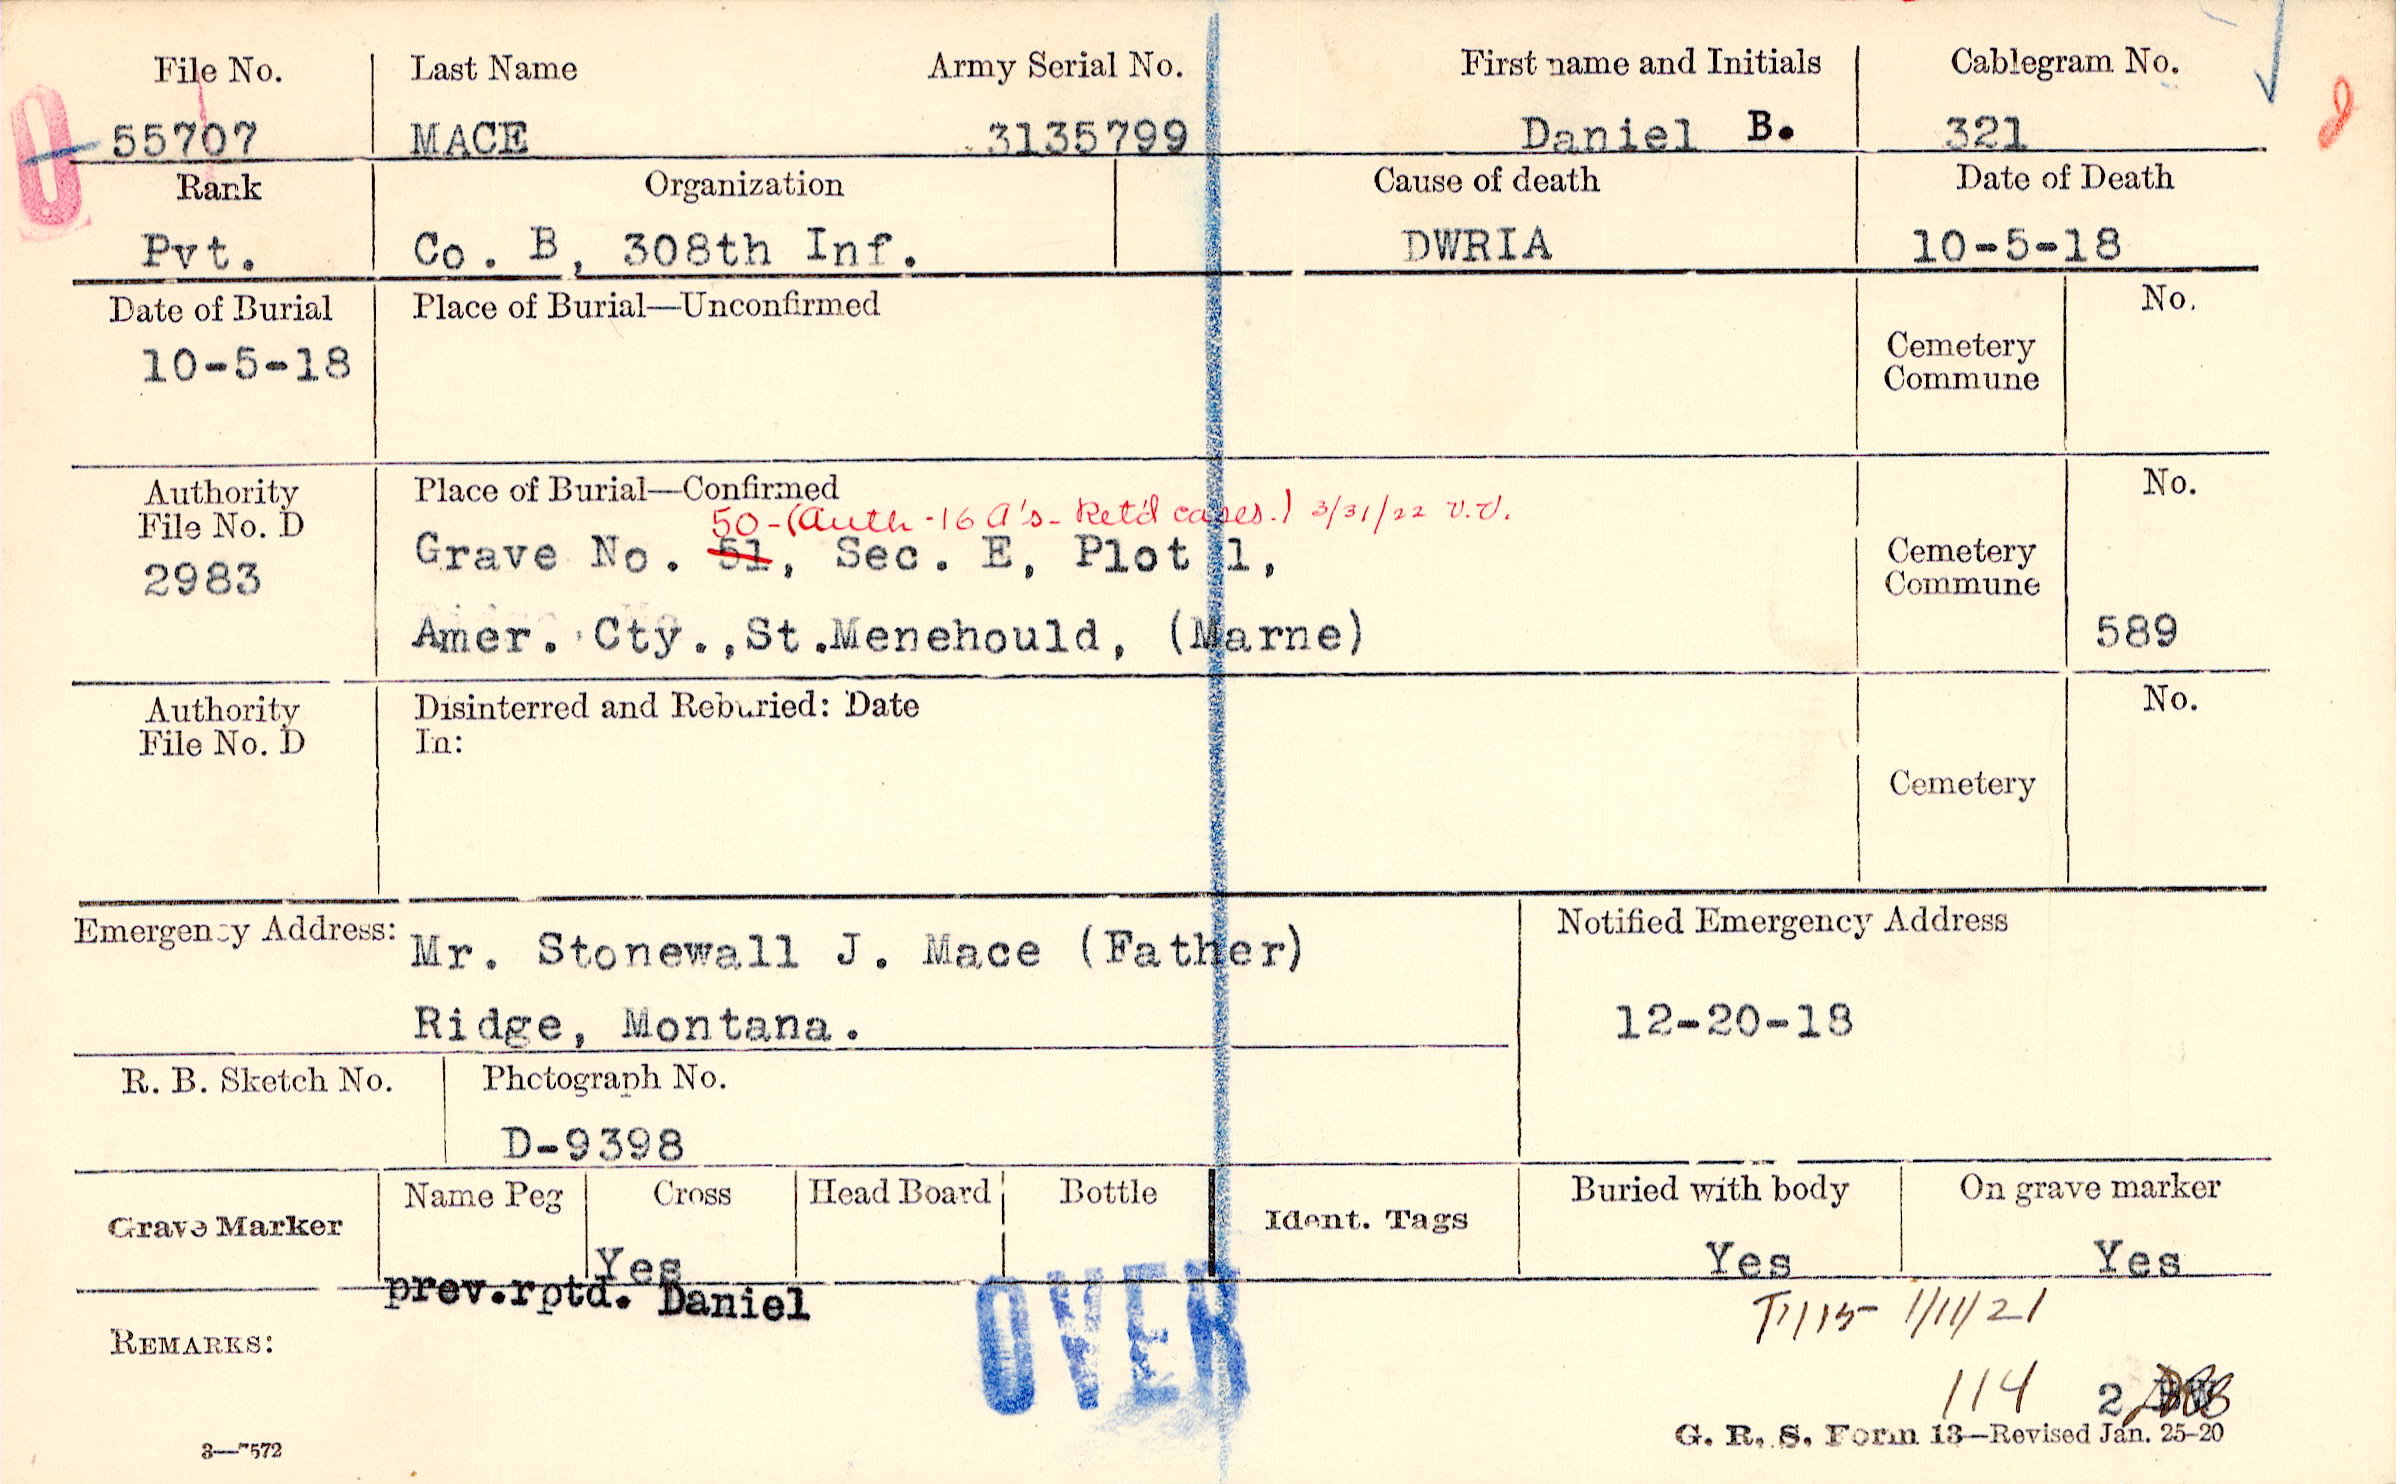 File No. Last Name Army Serial No. First name and Initials Cablegram No.
55707 MACE 3135799 Daniel B. 321
Rank Organization Cause of death Date of Death
Pvt. Co. B, 308th Inf. DWRIA 10-5-18
Date of Burial Place of Burial—Unconfirmed No.
10-5-18
Cemetery
Commune
Authority Place of Burial—Confirmed No.
File No. D 50-(Auth-16 A's-Ret'd cases.) 3/31/22 V.V.
2983 Grave No. 51, Sec. E, Plot 1, Cemetery
Commune
Amer. Cty.,St.Menehould, (Marne) 589
Authority Disinterred and Reburied: Date No.
File No. D In:
Cemetery
Emergency Address: Mr. Stonewall J. Mace (Father) Notified Emergency Address
Ridge, Montana. 12-20-18
R. B. Sketch No. Photograph No.
D-9398
Grave Marker Name Peg Cross Head Board Bottle Ident. Tags Buried with body On grave marker
Yes Yes Yes
prev.rptd. Daniel
OVER
1/11/21
REMARKS:
114 2
G. R. S. Form 13—Revised Jan. 25-20